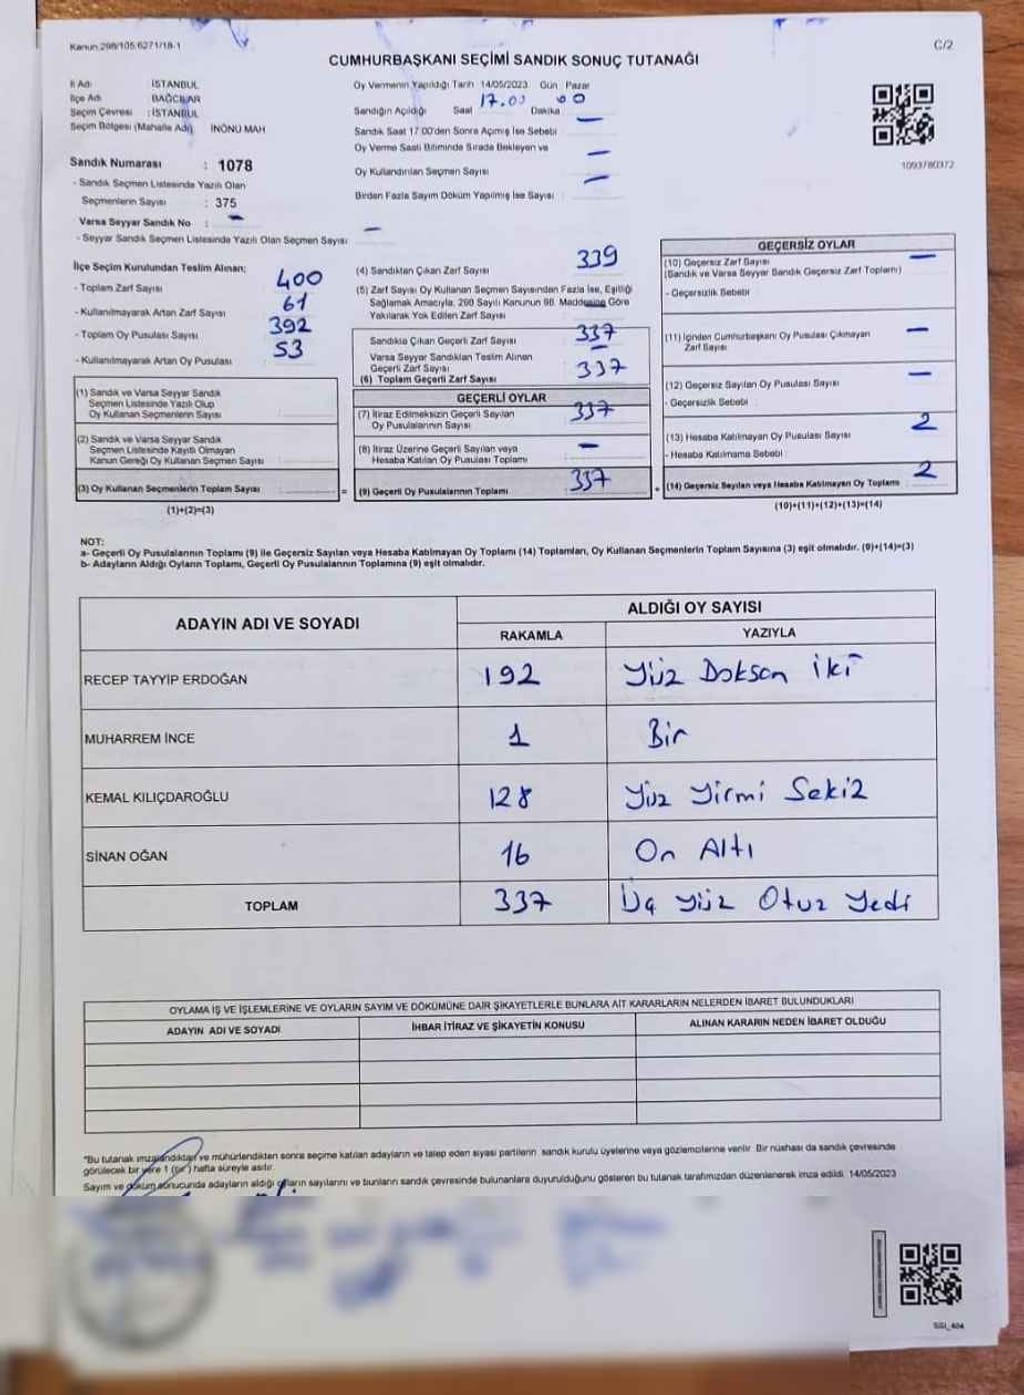 Kanun:298/105,6271/18-1
C/2
CUMHURBAŞKANI SEÇİMİ SANDIK SONUÇ TUTANAĞI
İl Adı : İSTANBUL
İlçe Adı : BAĞCILAR
Seçim Çevresi : İSTANBUL
Seçim Bölgesi (Mahalle Adı) İNÖNÜ MAH
Sandık Numarası : 1078
- Sandık Seçmen Listesinde Yazılı Olan
Seçmenlerin Sayısı : 375
Varsa Seyyar Sandık No : -
- Seyyar Sandık Seçmen Listesinde Yazılı Olan Seçmen Sayısı -
Oy Vermenin Yapıldığı Tarih 14/05/2023 Gün Pazar
Sandığın Açıldığı Saat 17.00 Dakika 00
Sandık Saat 17:00'den Sonra Açmış İse Sebebi -
Oy Verme Saati Bitiminde Sırada Bekleyen ve
Oy Kullandırılan Seçmen Sayısı -
Birden Fazla Sayım Döküm Yapılmış İse Sayısı -
1093780372
İlçe Seçim Kurulundan Teslim Alınan;
- Toplam Zarf Sayısı 400
- Kullanılmayarak Artan Zarf Sayısı 61
- Toplam Oy Pusulası Sayısı 392
- Kullanılmayarak Artan Oy Pusulası 53
(1) Sandık ve Varsa Seyyar Sandık
Seçmen Listesinde Yazılı Olup
Oy Kullanan Seçmenlerin Sayısı
(2) Sandık ve Varsa Seyyar Sandık
Seçmen Listesinde Kayıtlı Olmayan
Kanun Gereği Oy Kullanan Seçmen Sayısı
(3) Oy Kullanan Seçmenlerin Toplam Sayısı
(1)+(2)=(3)
(4) Sandıktan Çıkan Zarf Sayısı 339
(5) Zarf Sayısı Oy Kullanan Seçmen Sayısından Fazla İse, Eşitliği
Sağlamak Amacıyla, 298 Sayılı Kanunun 98. Maddesine Göre
Yakılarak Yok Edilen Zarf Sayısı -
Sandıkta Çıkan Geçerli Zarf Sayısı 337
Varsa Seyyar Sandıktan Teslim Alınan
Geçerli Zarf Sayısı -
(6) Toplam Geçerli Zarf Sayısı 337
GEÇERLİ OYLAR
(7) İtiraz Edilmeksizin Geçerli Sayılan
Oy Pusulalarının Sayısı 337
(8) İtiraz Üzerine Geçerli Sayılan veya
Hesaba Katılan Oy Pusulası Toplamı -
= (9) Geçerli Oy Pusulalarının Toplamı 337
GEÇERSİZ OYLAR
(10) Geçersiz Zarf Sayısı -
(Sandık ve Varsa Seyyar Sandık Geçersiz Zarf Toplamı)
- Geçersizlik Sebebi
(11) İçinden Cumhurbaşkanı Oy Pusulası Çıkmayan
Zarf Sayısı -
(12) Geçersiz Sayılan Oy Pusulası Sayısı -
- Geçersizlik Sebebi :
(13) Hesaba Katılmayan Oy Pusulası Sayısı 2
- Hesaba Katılmama Sebebi :
+ (14) Geçersiz Sayılan veya Hesaba Katılmayan Oy Toplamı 2
(10)+(11)+(12)+(13)=(14)
NOT:
a- Geçerli Oy Pusulalarının Toplamı (9) ile Geçersiz Sayılan veya Hesaba Katılmayan Oy Toplamı (14) Toplamları, Oy Kullanan Seçmenlerin Toplam Sayısına (3) eşit olmalıdır. (9)+(14)=(3)
b- Adayların Aldığı Oyların Toplamı, Geçerli Oy Pusulalarının Toplamına (9) eşit olmalıdır.
ADAYIN ADI VE SOYADI
ALDIĞI OY SAYISI
RAKAMLA YAZIYLA
RECEP TAYYİP ERDOĞAN 192 Yüz Doksan İki
MUHARREM İNCE 1 Bir
KEMAL KILIÇDAROĞLU 128 Yüz Yirmi Sekiz
SİNAN OĞAN 16 On Altı
TOPLAM 337 Üç Yüz Otuz Yedi
OYLAMA İŞ VE İŞLEMLERİNE VE OYLARIN SAYIM VE DÖKÜMÜNE DAİR ŞİKAYETLERLE BUNLARA AİT KARARLARIN NELERDEN İBARET BULUNDUKLARI
ADAYIN ADI VE SOYADI İHBAR İTİRAZ VE ŞİKAYETİN KONUSU ALINAN KARARIN NEDEN İBARET OLDUĞU
"Bu tutanak imzalandıktan ve mühürlendikten sonra seçime katılan adayların ve talep eden siyasi partilerin sandık kurulu üyelerine veya gözlemcilerine verilir. Bir nüshası da sandık çevresinde
görülecek bir yere 1 (bir) hafta süreyle asılır.
Sayım ve döküm sonucunda adayların aldığı oyların sayılarını ve bunların sandık çevresinde bulunanlara duyurulduğunu gösteren bu tutanak tarafımızdan düzenlenerek imza edildi. 14/05/2023